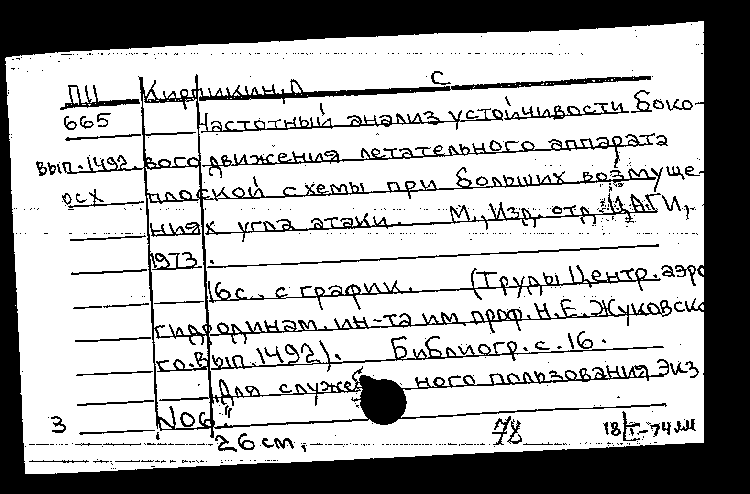 ПЦ Кирпикин, Л С
665 Частотный анализ устойчивости боко-
вып.1492. вого движения летательного аппарата
осх плоской схемы при больших возмуще-
ниях угла атаки. М., Изд. отд. ЦАГИ,
1973.
16с. с график. (Труды Центр. аэро
гидродинам. ин-та им. проф. Н.Е. Жуковско
го. Вып. 1492). Библиогр. с. 16.
"Для служеб ного пользования Экз
3 №06."
26 cm. 78 18/I-74